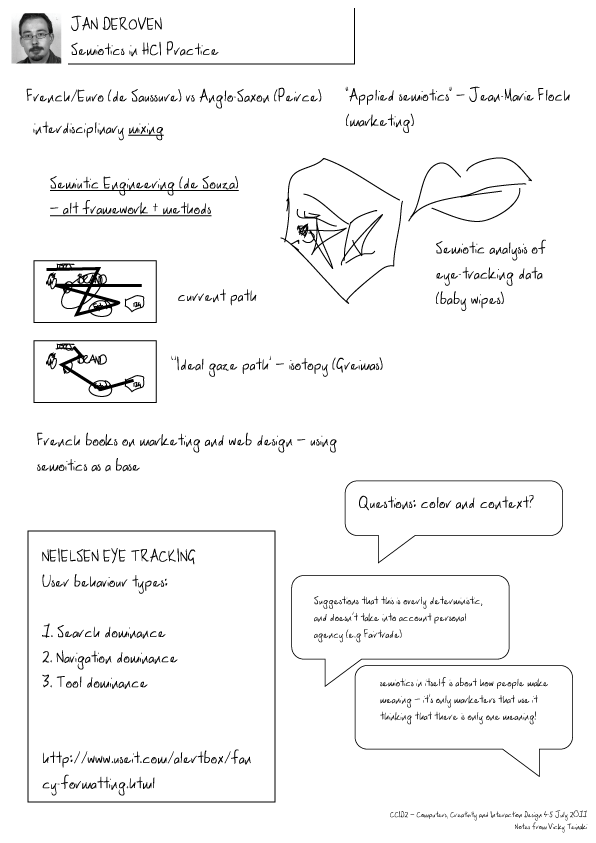 JAN DEROVEN
Semiotics in HCI Practice
French/Euro (de Saussure) vs Anglo-Saxon (Peirce)
interdisciplinary mixing
"Applied semiotics" – Jean-Marie Floch
(marketing)
Semiotic Engineering (de Souza)
– alt framework + methods
Semiotic analysis of
eye-tracking data
(baby wipes)
BRAND
current path
BRAND
"Ideal gaze path' – isotopy (Greimas)
French books on marketing and web design – using
semoitics as a base
Questions: color and context?
NEIELSEN EYE TRACKING
User behaviour types:
1. Search dominance
2. Navigation dominance
3. Tool dominance
http://www.useit.com/alertbox/fan
cy-formatting.html
Suggestions that this is overly deterministic,
and doesn't take into account personal
agency (e.g Fairtrade)
semiotics in itself is about how people make
meaning – it's only marketers that use it
thinking that there is only one meaning!
CCID2 – Computers, Creativity and Interaction Design 4-5 July 2011
Notes from Vicky Teinaki